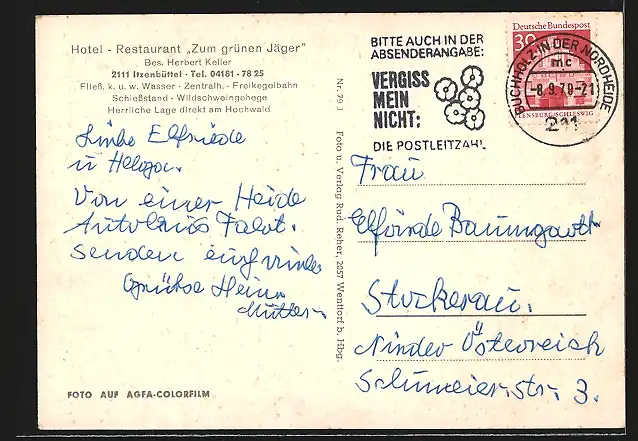 Hotel - Restaurant „Zum grünen Jäger"
Bes. Herbert Keller
2111 Itzenbüttel · Tel. 04181 - 78 25
Fließ. k. u. w. Wasser · Zentralh. - Freikegelbahn
Schießstand · Wildschweingehege
Herrliche Lage direkt am Hochwald
Liebe Elfriede
u
Von einer Heide
Autobus Fahrt.
senden
Grüße
Mutter
FOTO AUF AGFA-COLORFILM
Nr. 79 J Foto u. Verlag Rud. Reher, 2057 Wentorf b. Hbg.
BITTE AUCH IN DER
ABSENDERANGABE:
VERGISS
MEIN
NICHT:
DIE POSTLEITZAHL
Deutsche Bundespost
30
FLENSBURG/SCHLESWIG
BUCHHOLZ IN DER NORDHEIDE
mc
-8.9.70-21
211
Frau
Elfriede Baumgartt
Stockerau.
Österreich
3.